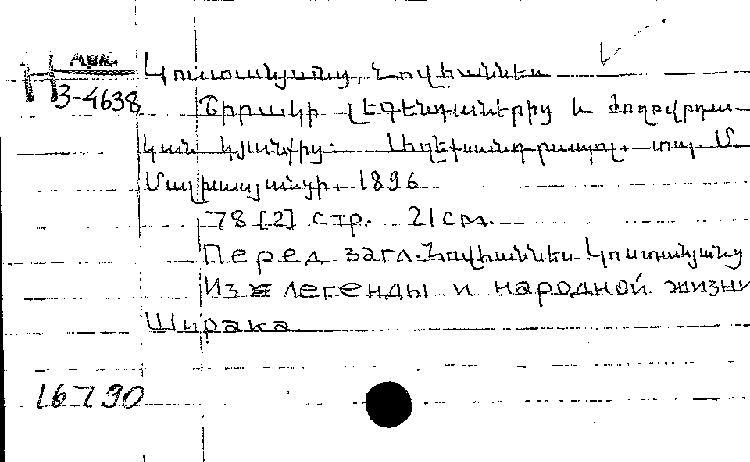 Арм.
3-4638
Կոստանյանց, Հովհաննես
Շիրակի լեգենդաներից և ժողովրդա-
կան կյանքից. Ալեքսանդրապոլ. տպ. Մ.
Մալխասյանցի. 1896
78 [2] стр. 21 см.
Перед загл. Հովհաննես Կոստանյանց
Из легенды и народной жизни
Ширака
16790